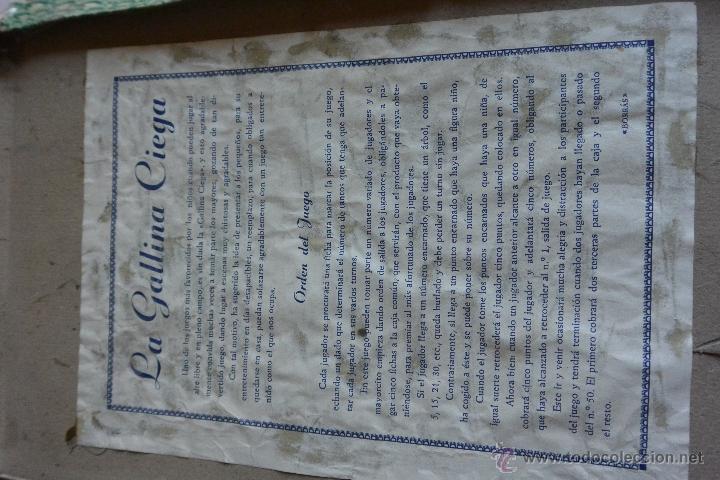 La Gallina Ciega
Uno de los juegos más favorecidos por los niños cuando pueden jugar al
aire libre y en pleno campo, es sin duda la «Gallina Ciega», y esto agradable-
mente convida muchas veces a tomar parte los mayores, gozando de tan di-
vertido juego, dando lugar a escenas muy chistosas y agradables.
Con tal motivo, ha sugerido la idea de presentar a los pequeños, para su
entretenimiento en días desapacibles, un reemplazo, para cuando obligados a
quedarse en casa, puedan solazarse agradablemente con un juego tan entrete-
nido como el que nos ocupa.
Orden del Juego
Cada jugador se procurará una ficha para marcar la posición de su juego,
echando un dado que determinará el número de tantos que tenga que adelan-
tar cada jugador en sus varios turnos.
En este juego pueden tomar parte un número variado de jugadores y el
mayorcito empieza dando orden de salida a los jugadores, obligándoles a pa-
gar cinco fichas a la caja común, que servirán, con el producto que vaya obte-
niéndose, para premiar al más afortunado de los jugadores.
Si el jugador llega a un número encarnado, que tiene un árbol, como el
5, 15, 21, 30, etc., queda burlado y debe perder un turno sin jugar.
Contrariamente, si llega a un punto encarnado que haya una figura niño,
ha cogido a éste y se puede poner sobre su número.
Cuando el jugador tome los puntos encarnados que haya una niña, de
igual suerte retrocederá el jugador cinco puntos, quedando colocado en ellos.
Ahora bien: cuando un jugador anterior alcance a otro en igual número,
cobrará cinco puntos del jugador y adelantará cinco números, obligando al
que haya alcanzado a retroceder al n.º 1, salida de juego.
Este ir y venir ocasionará mucha alegría y distracción a los participantes
del juego y tendrá terminación cuando dos jugadores hayan llegado o pasado
del n.º 50. El primero cobrará dos terceras partes de la caja y el segundo
el resto.
«BORRÁS»
todocoleccion.net